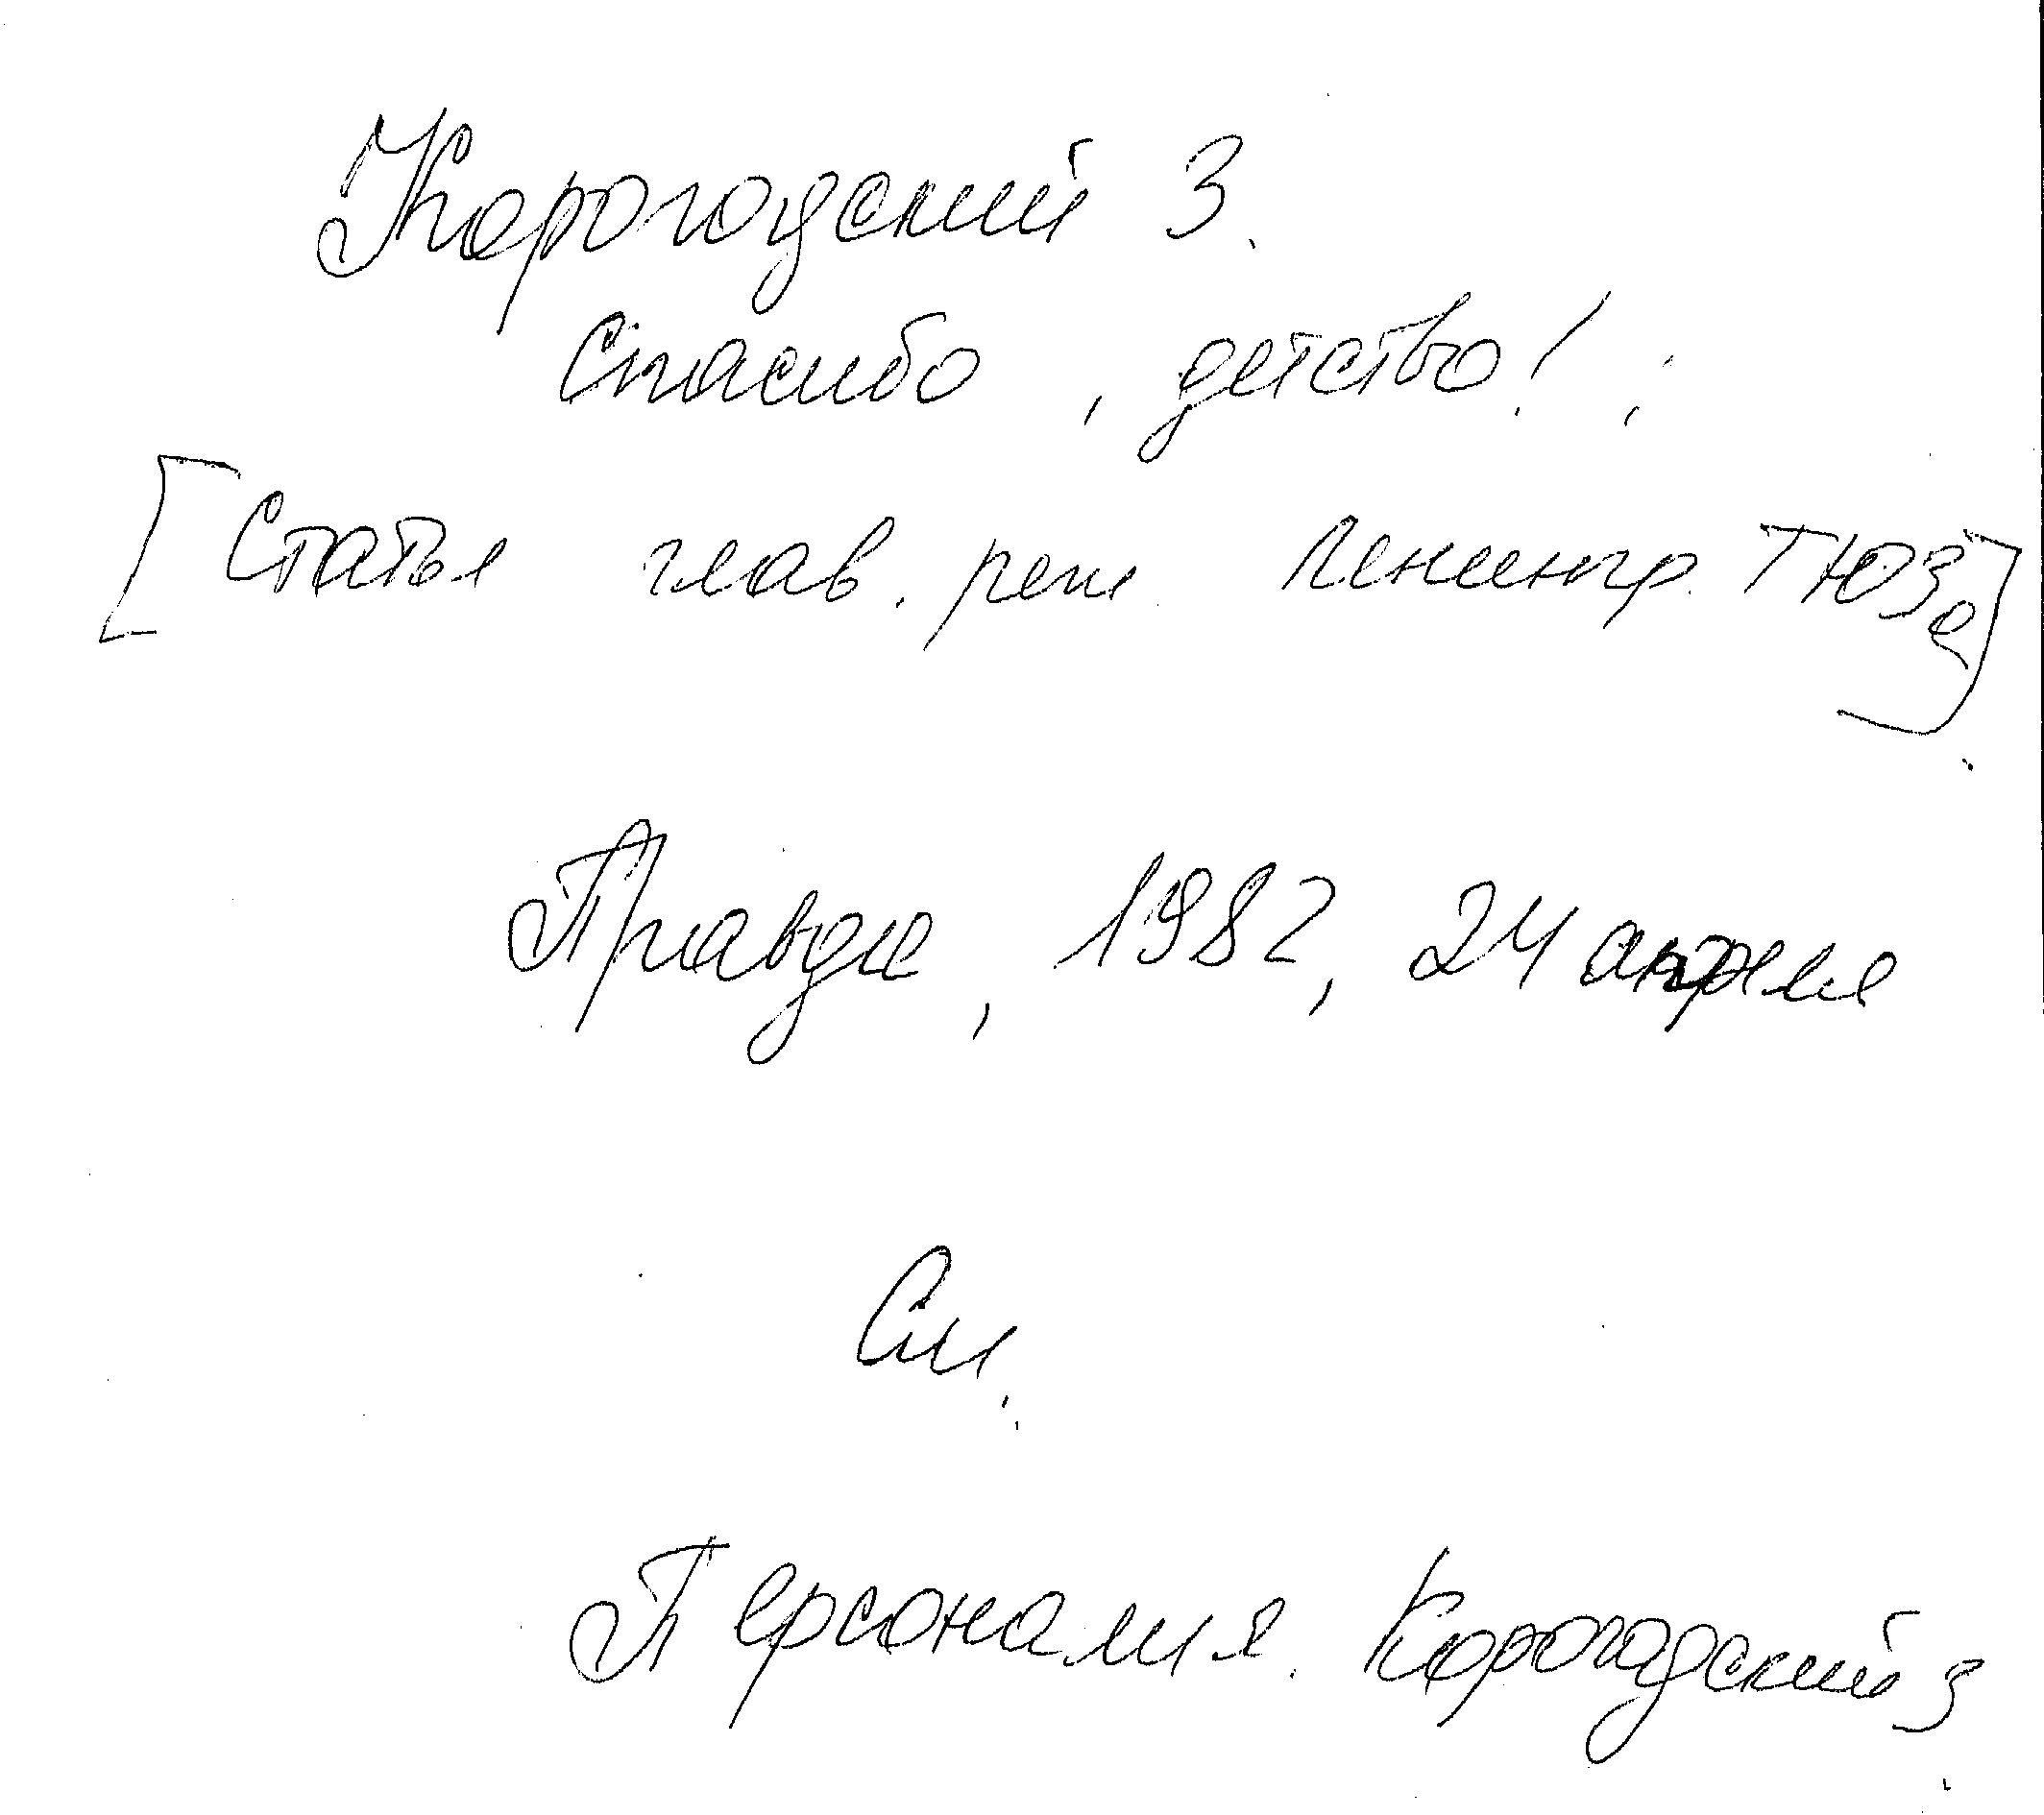 Корогодский З.
Спасибо, детство!;
[Статья глав. реж. Ленингр. ТЮЗа]
Правда, 1982, 24 апреля
См.
Персоналия. Корогодский З